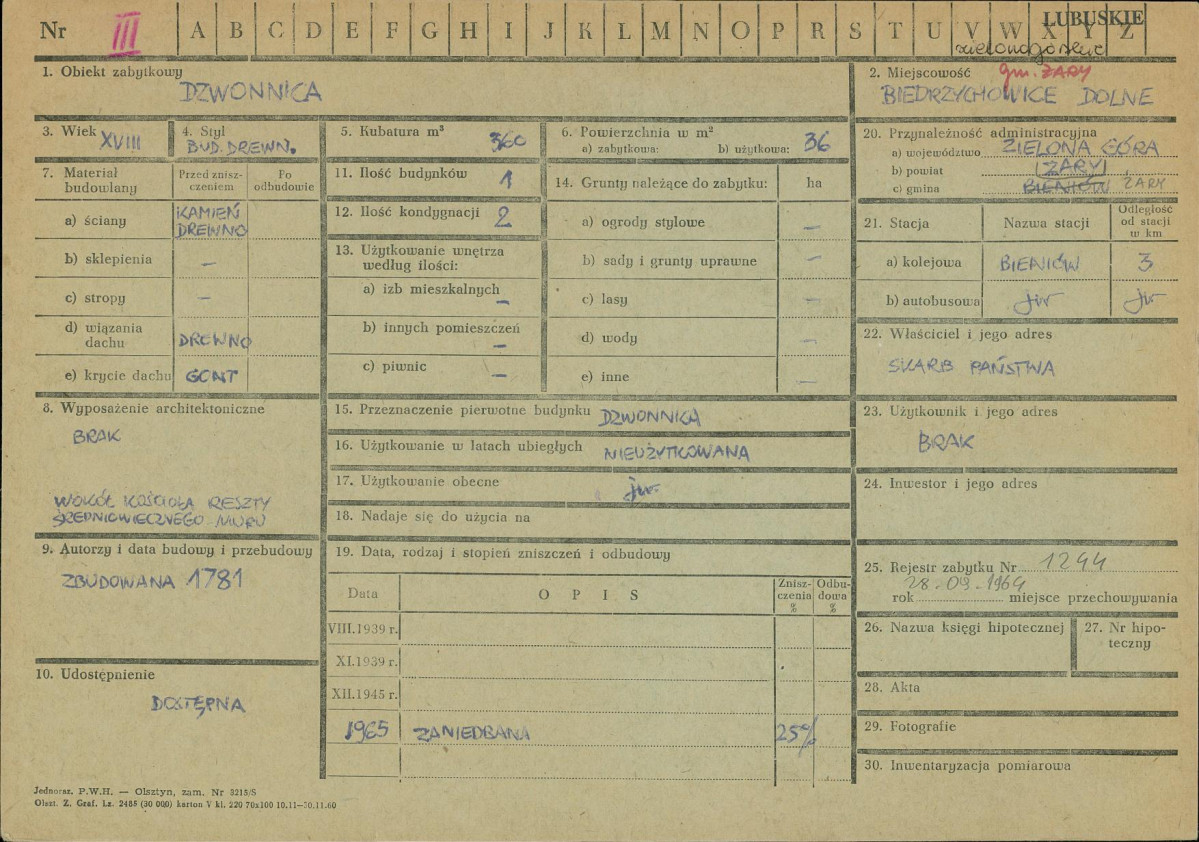 Nr III A B C D E F G H I J K L M N O P R S T U V W X Y Z
LUBUSKIE
zielonogórskie
1. Obiekt zabytkowy
DZWONNICA
2. Miejscowość gm. ŻARY
BIEDRZYCHOWICE DOLNE
3. Wiek XVIII
4. Styl
BUD. DREWN.
5. Kubatura m³ 360
6. Powierzchnia w m²
a) zabytkowa: b) użytkowa: 36
20. Przynależność administracyjna
a) województwo ZIELONA GÓRA
b) powiat ŻARY
c) gmina BIENIÓW ŻARY
7. Materiał budowlany
Przed zniszczeniem
Po odbudowie
a) ściany KAMIEŃ
DREWNO
b) sklepienia —
c) stropy —
d) wiązania
dachu DREWNO
e) krycie dachu GONT
11. Ilość budynków 1
12. Ilość kondygnacji 2
13. Użytkowanie wnętrza
według ilości:
a) izb mieszkalnych —
b) innych pomieszczeń —
c) piwnic —
14. Grunty należące do zabytku: ha
a) ogrody stylowe —
b) sady i grunty uprawne —
c) lasy —
d) wody —
e) inne —
21. Stacja Nazwa stacji
Odległość
od stacji
w km
a) kolejowa BIENIÓW 3
b) autobusowa jw jw
22. Właściciel i jego adres
SKARB PAŃSTWA
8. Wyposażenie architektoniczne
BRAK
WOKÓŁ KOŚCIOŁA RESZTY
ŚREDNIOWIECZNEGO MURU
15. Przeznaczenie pierwotne budynku DZWONNICA
16. Użytkowanie w latach ubiegłych NIEUŻYTKOWANA
17. Użytkowanie obecne jw.
18. Nadaje się do użycia na
23. Użytkownik i jego adres
BRAK
24. Inwestor i jego adres
9. Autorzy i data budowy i przebudowy
ZBUDOWANA 1781
10. Udostępnienie
DOSTĘPNA
19. Data, rodzaj i stopień zniszczeń i odbudowy
Data OPIS
Zniszczenia
%
Odbudowa
%
VIII.1939 r.
XI.1939 r.
XII.1945 r.
1965 ZANIEDBANA 25%
25. Rejestr zabytku Nr 1244
28.09.1964
rok miejsce przechowywania
26. Nazwa księgi hipotecznej
27. Nr hipoteczny
28. Akta
29. Fotografie
30. Inwentaryzacja pomiarowa
Jednoraz. P.W.H. — Olsztyn, zam. Nr 3215/S
Olszt. Z. Graf. Lz. 2485 (30 000) karton V kl. 220 70x100 10.11—30.11.60